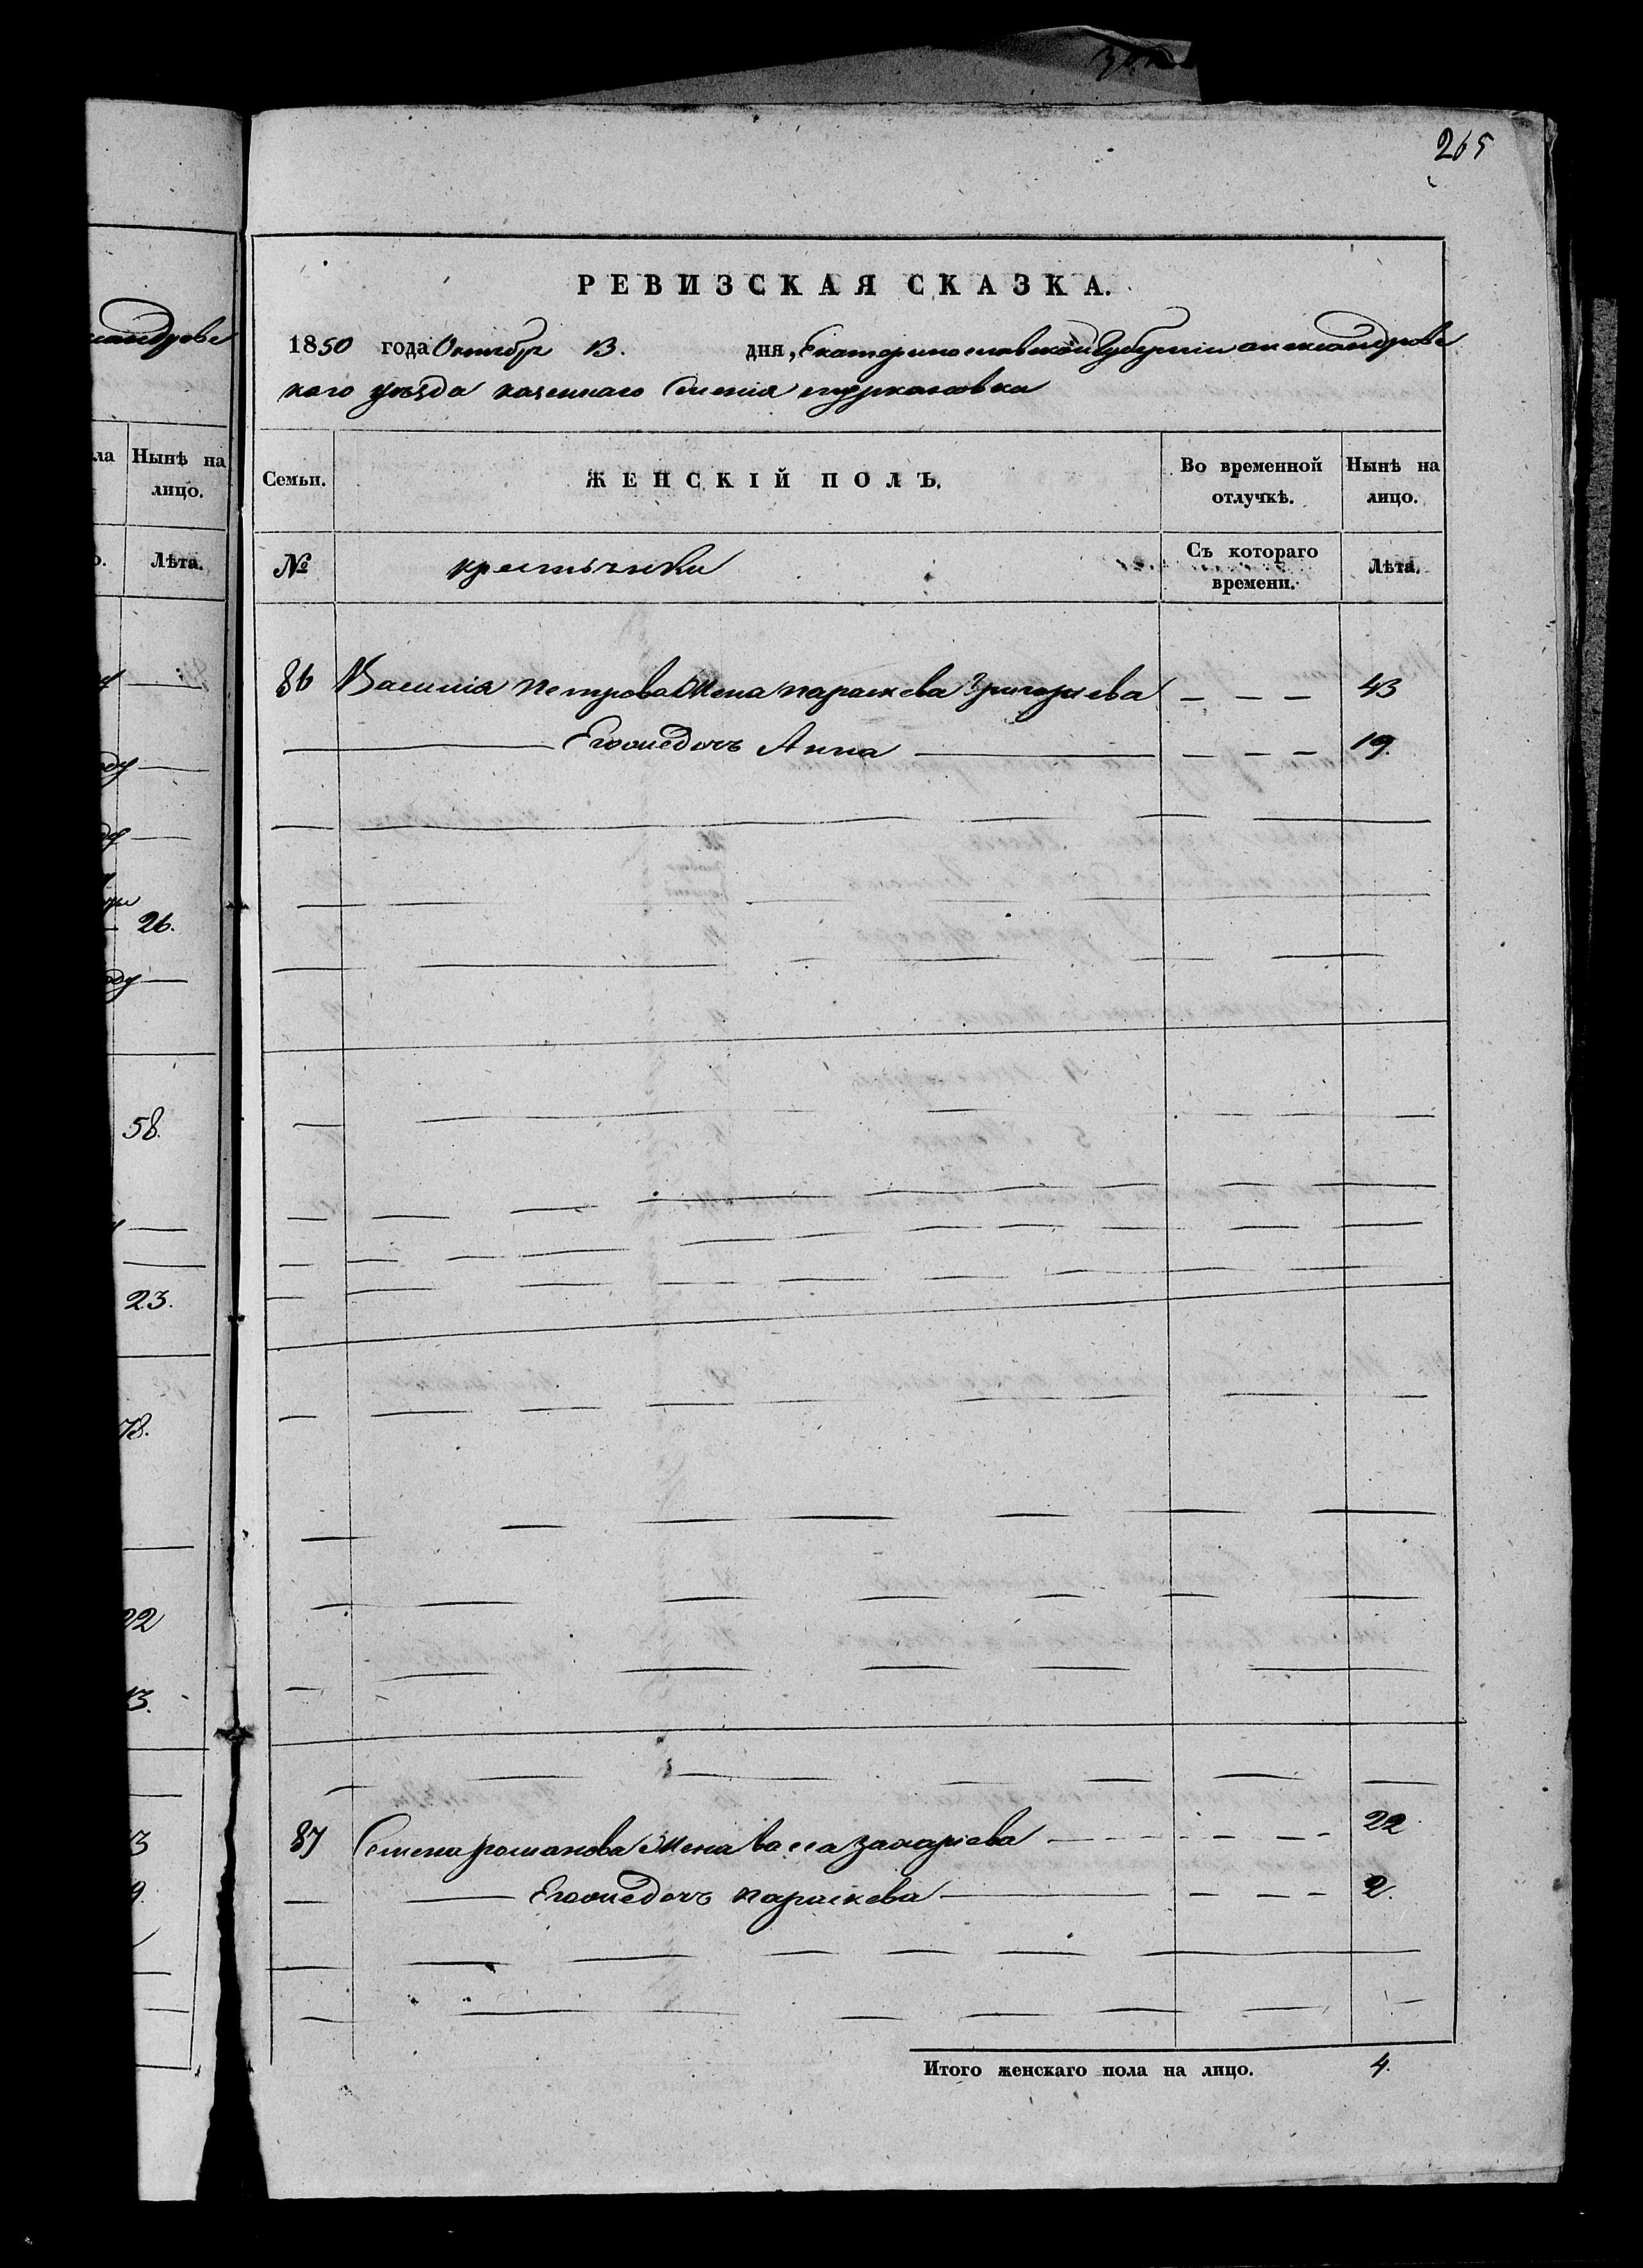 265
РЕВИЗСКАЯ СКАЗКА.
1850 года Октябр 13. дня, Екатеринославской Губернии александровс
кого уезда казенного Селения
Семьи.
ЖЕНСКІЙ ПОЛЪ.
Во временной отлучкѣ.
Нынѣ на лицо.
№
крестьянки
Съ котораго времени.
Лѣта.
86 Василия петрова Жена параскева Григориева — — — 43
Егоже дочь Анна — — — 19.
87 Семена романова Жена васса захариева — — — 22
Егоже дочь параскева — — — 2.
Итого женскаго пола на лицо. 4.
ла
Нынѣ на
лицо.
Лѣта.
26.
58.
23.
78.
22
13.
3
9.